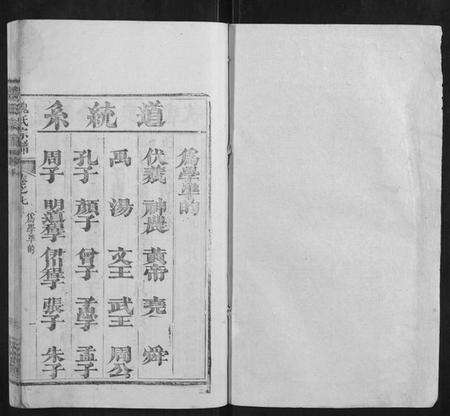 道統系
為學準的
伏羲 神農 黃帝 堯 舜
禹 湯 文王 武王 周公
孔子 顏子 曾子 子思子 孟子
周子 明道程子 伊川程子 張子 朱子
氏宗譜
為學準的